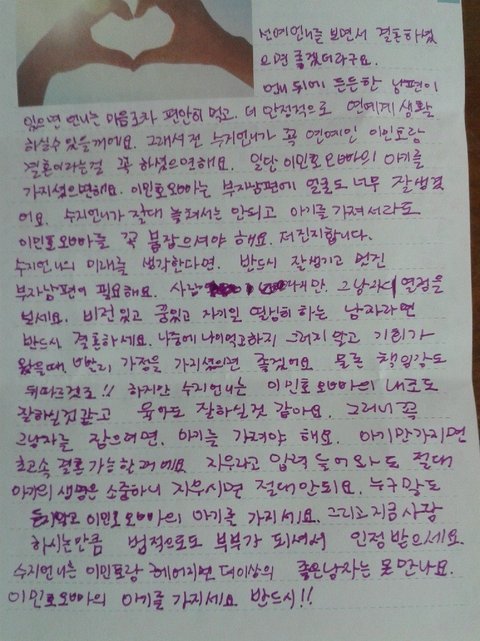 선예언니를 보면서 결혼하셨
으면 좋겠더라구요.
언니 뒤에 든든한 남편이
있으면 언니는 마음고차 편안히 먹고. 더 안정적으로 연예계 생활
하실수있을꺼에요. 그래서 전 수지언니가 꼭 연예인 이민호랑
결혼이라는걸 꼭 하셨으면해요. 일단 이민호오빠의 아기를
가지셨으면해요. 이민호오빠는 부자남편에 얼굴도 너무 잘생겼
어요. 수지언니가 절대 놓쳐서는 안되고 아기를 가져서라도
이민호오빠를 꼭 붙잡으셔야 해요. 저진지합니다.
수지언니의 미래를 생각한다면. 반드시 잘생기고 멋진
부자남편이 필요해요. 사람 지만. 그남자의 열정을
보세요. 비전있고 꿈있고 자기일 열심히 하는 남자라면
반드시 결혼하세요. 나중에 나이먹고하지 그러지 말고 기회가
왔을때 빨리 가정을 가지셨으면 좋겠어요 물론 책임감도
뒤따르겠죠!! 하지만 수지언니는 이민호오빠의 내조도
잘하실것같고 육아도 잘하실것 같아요. 그러니 꼭
그남자를 잡으려면. 아기를 가져야 해요. 아기만가지면
초고속 결혼 가능한거에요 지우라고 압력 들어와도 절대
아기의 생명은 소중하니 지우시면 절대안되요. 누구말도
듣지말고 이민호오빠의 아기를 가지세요. 그리고 지금 사랑
하시는만큼 법적으로도 부부가 되셔서 인정받으세요.
수지언니는 이민호랑 헤어지면 더이상의 좋은남자는 못만나요.
이민호오빠의 아기를 가지세요 반드시!!